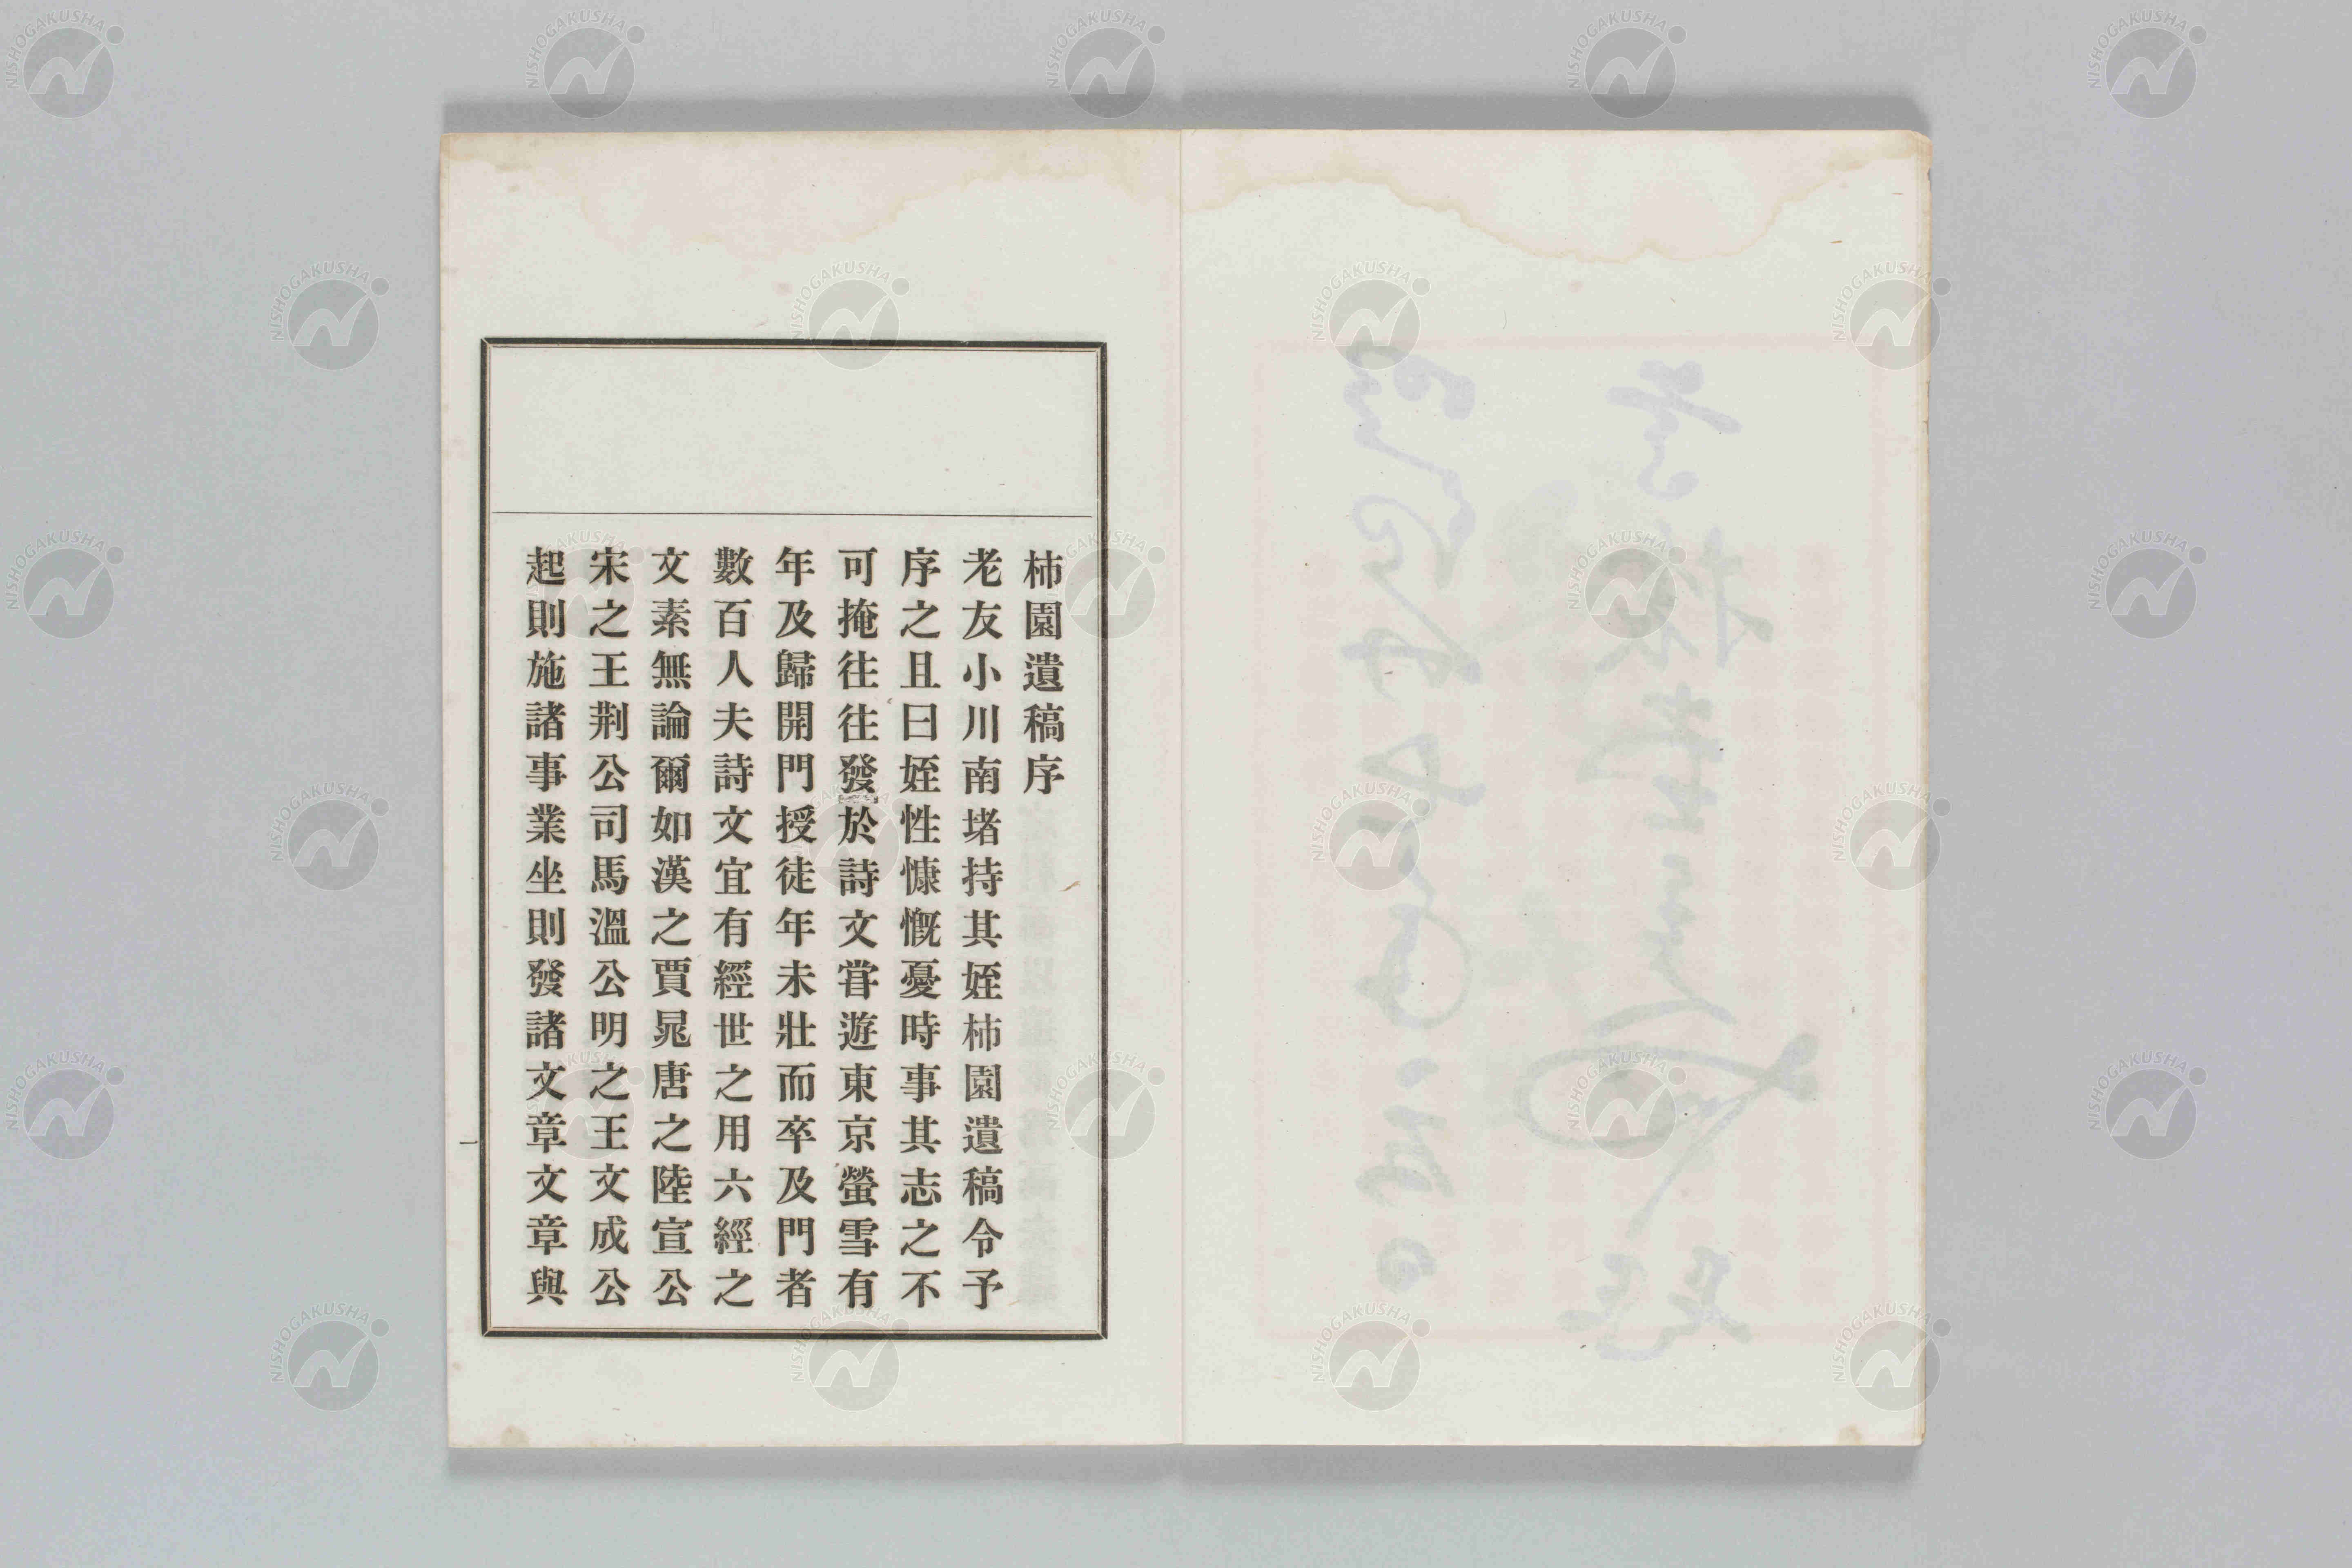 柿園遺稿序
老友小川南堵持其姪柿園遺稿令予
序之且曰姪性慷慨憂時事其志之不
可掩往往發於詩文甞遊東京螢雪有
年及歸開門授徒年未壯而卒及門者
數百人夫詩文宜有經世之用六經之
文素無論爾如漢之賈晁唐之陸宣公
宋之王荆公司馬溫公明之王文成公
起則施諸事業坐則發諸文章文章與
一